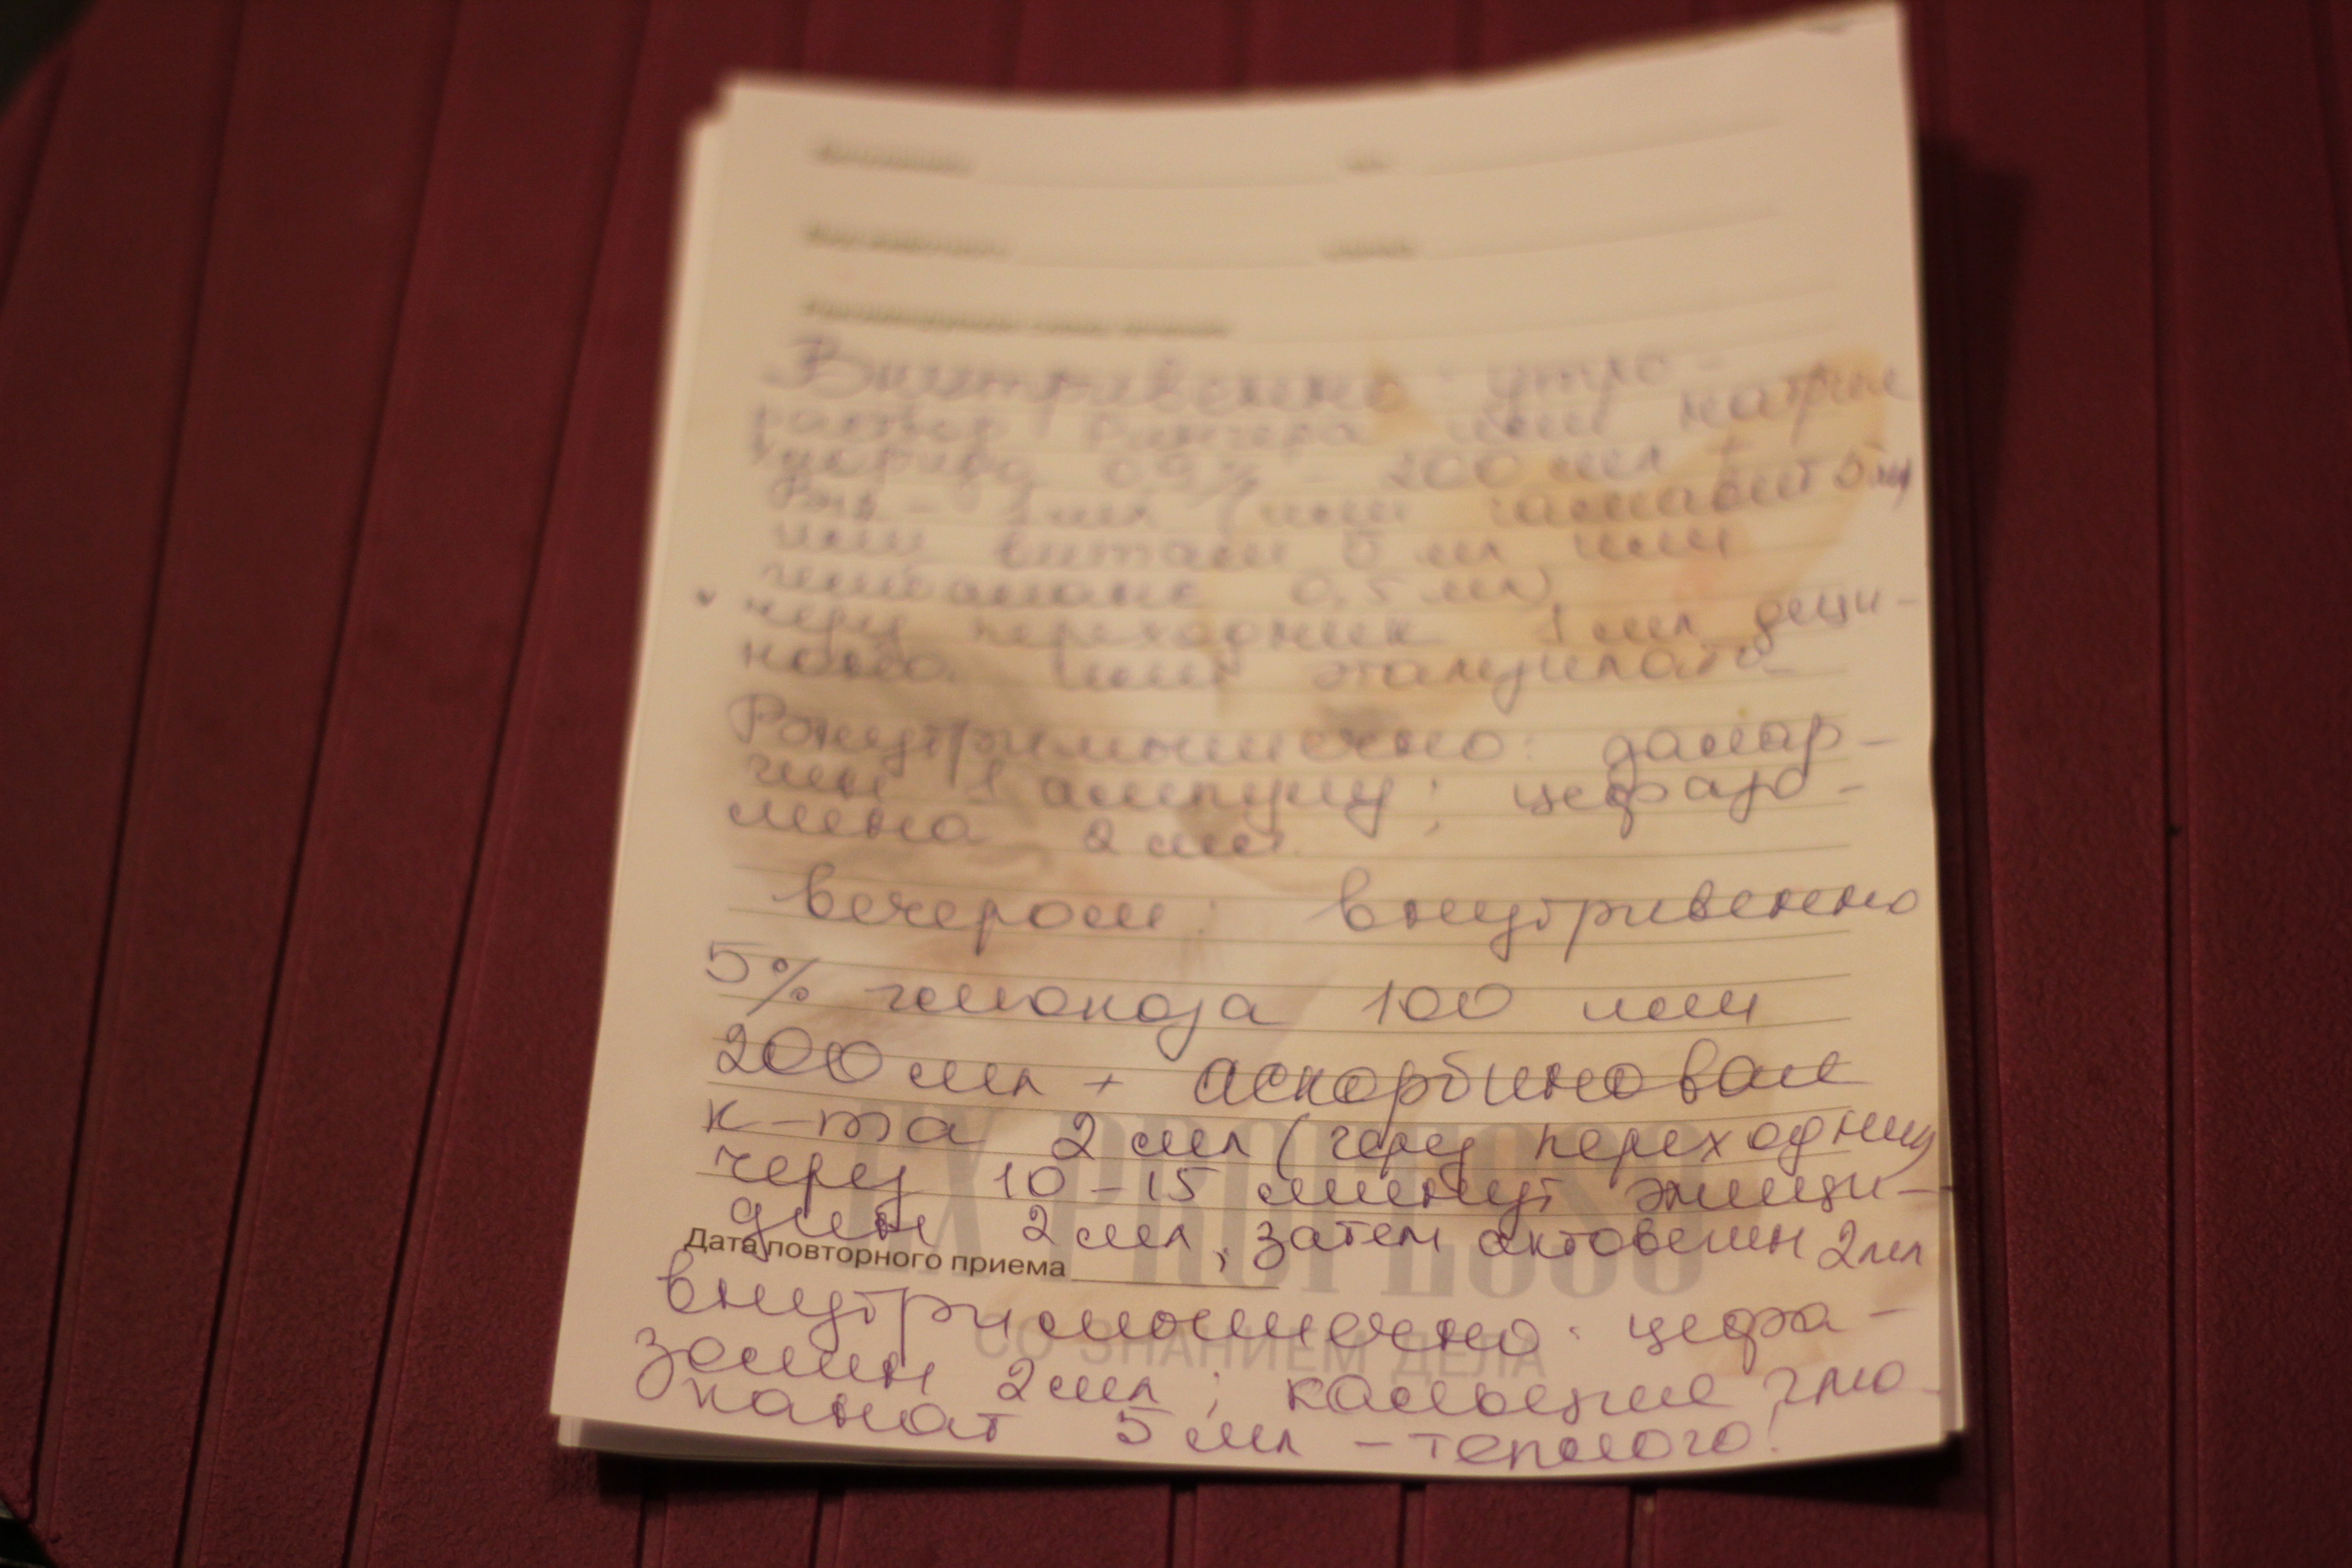 Внутривенно: утро -
раствор Рингера или натрия
хлорида 0,9% - 200 мл +
1 мл (или гамавит 5 мл
или 5 мл или
0,5 мл)
через переходник 1 мл дици-
нона или этамзилата
Внутримышечно: даларгин
1 ампулу; цефазо-
лина 2 мл
вечером: внутривенно
5% глюкоза 100 или
200 мл + аскорбиновая
к-та 2 мл (через переходник
через 10-15 минут эмици-
дин 2 мл, затем актовегин 2мл
Дата повторного приема
внутримышечно: цефа-
золин 2 мл; кальция глю-
канат 5 мл - теплого!
EX PROFESSO
СО ЗНАНИЕМ ДЕЛА